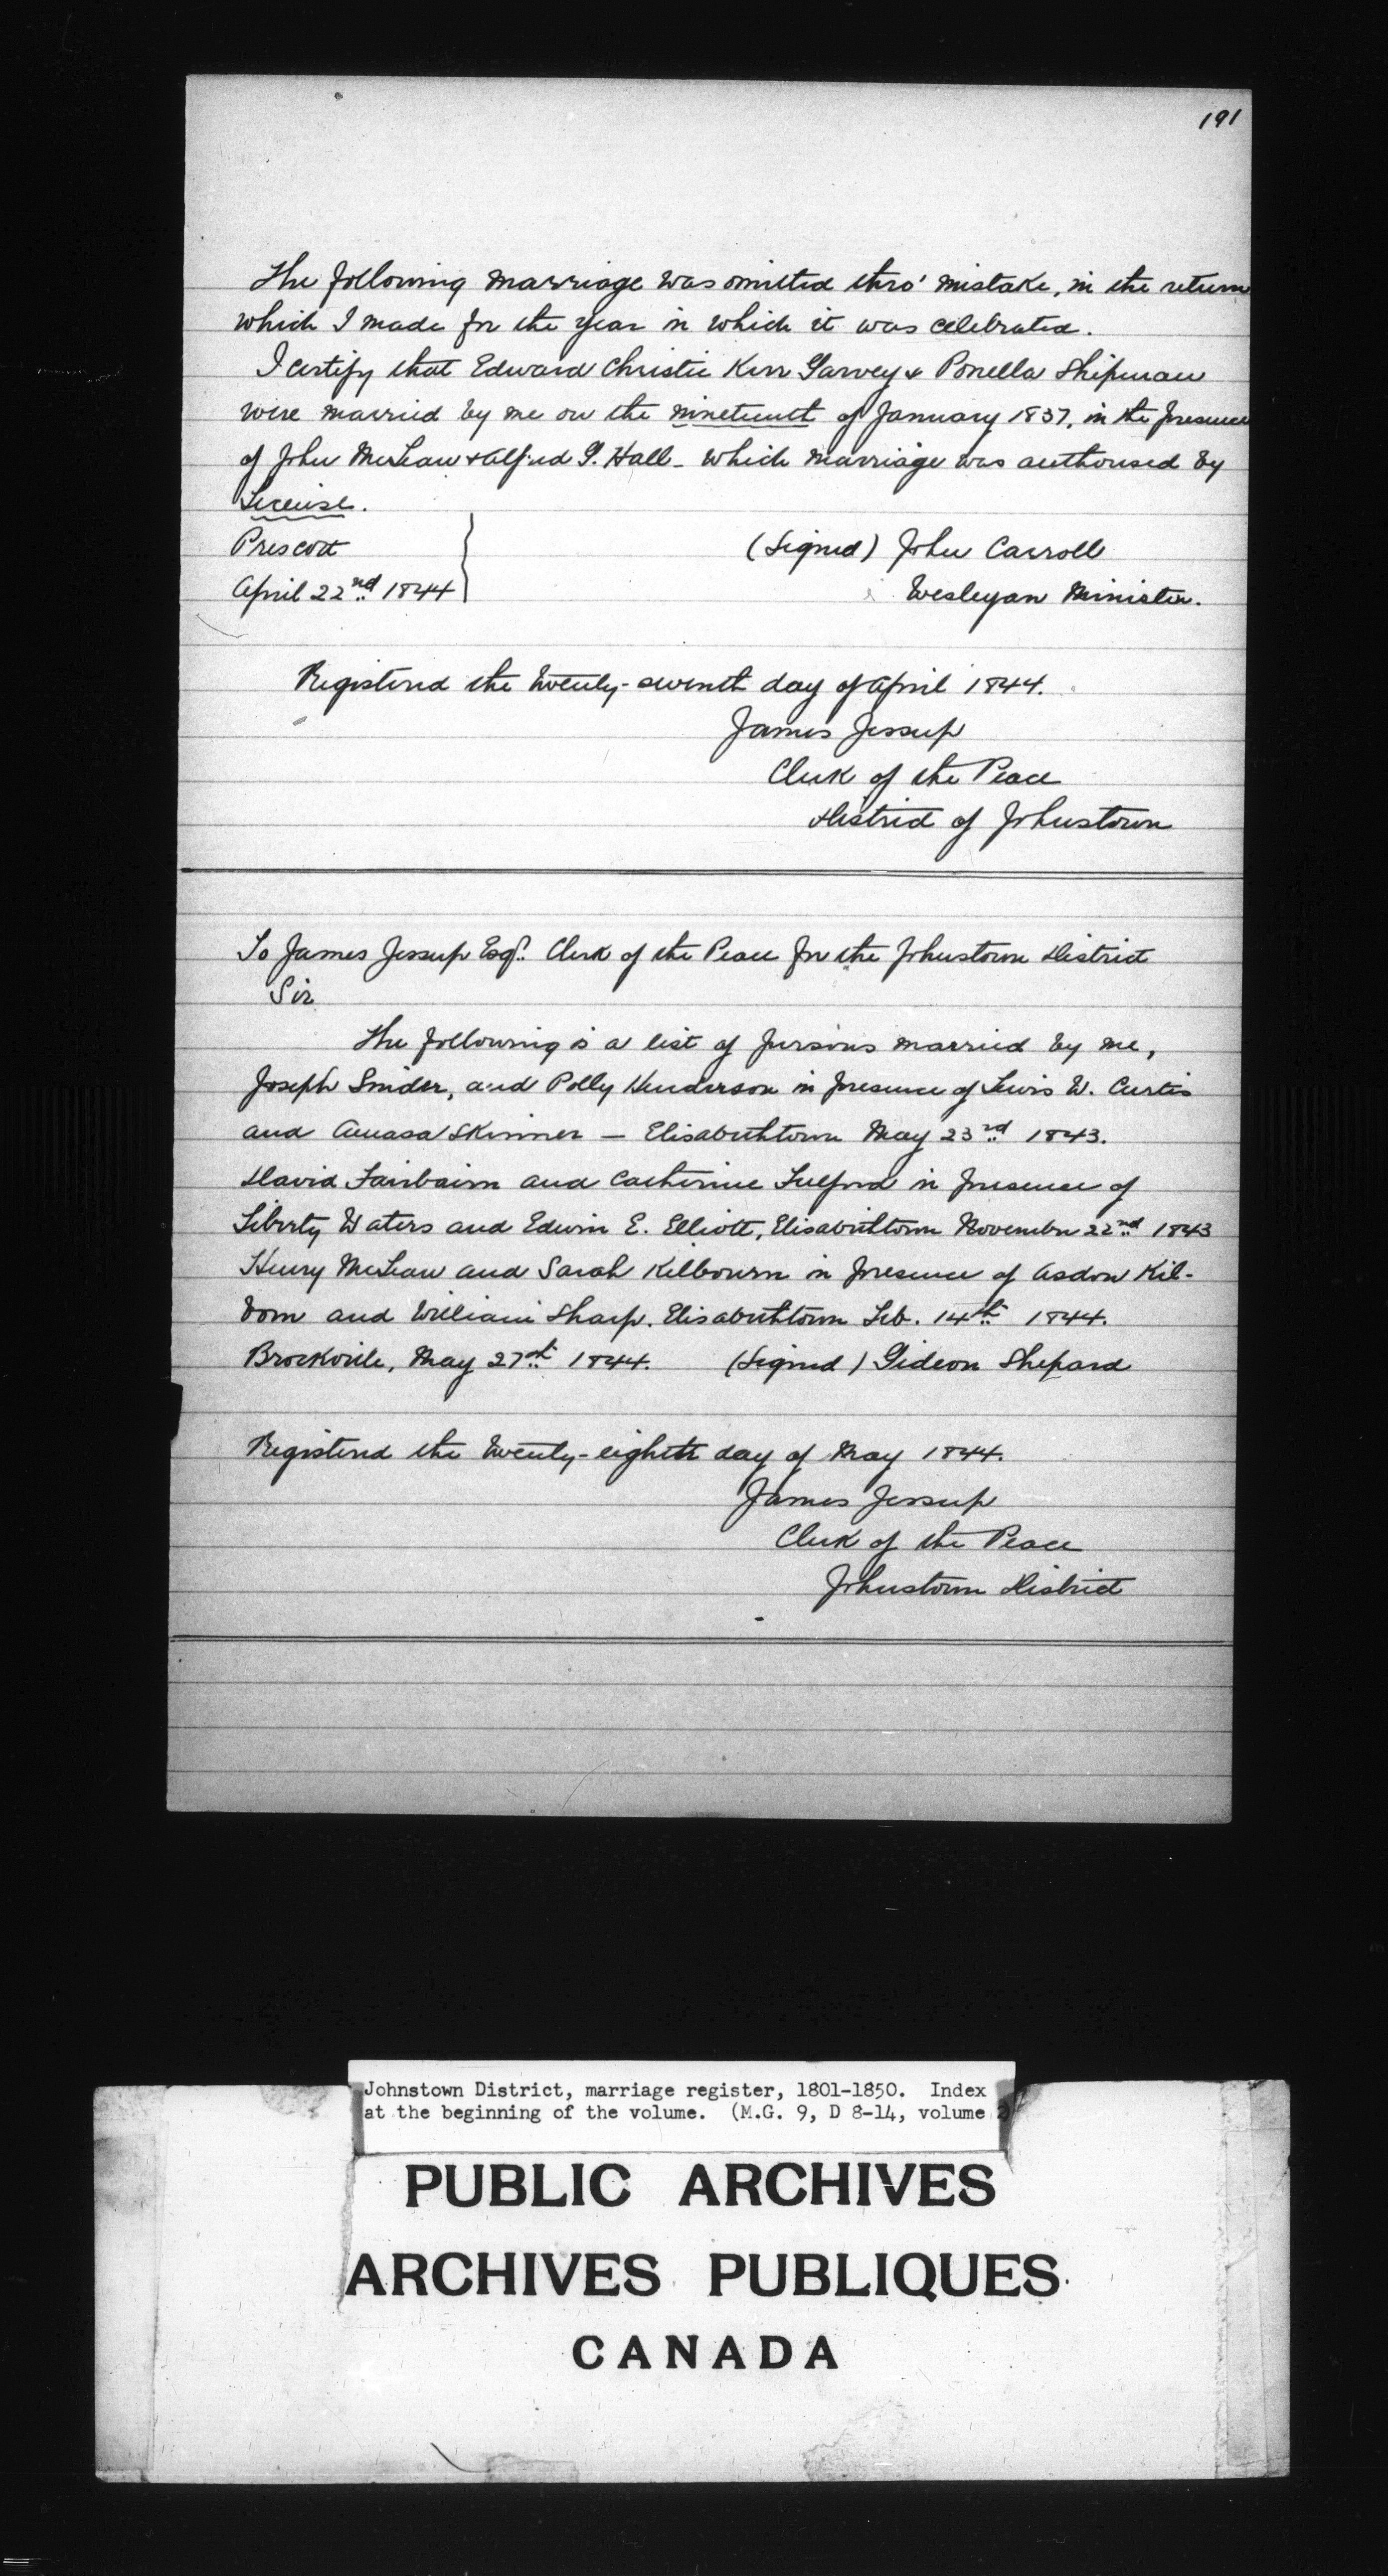 191
The following marriage was omitted thro' mistake, in the return
which I made for the year in which it was celebrated.
I certify that Edward Christie Kerr Garvey & Ponella Shipman
were married by me on the nineteenth of January 1837, in the presence
of John McLean & Alfred G. Hall - which marriage was authorised by
License.
Prescott
(Signed) John Carroll
April 22nd 1844
Wesleyan Minister.
Registered the twenty-seventh day of April 1844.
James Jessup
Clerk of the Peace
District of Johnstown
To James Jessup Esqr. Clerk of the Peace for the Johnstown District
Sir
The following is a list of persons married by me,
Joseph Snider, and Polly Henderson in presence of Lewis W. Curtis
and Amasa Skinner — Elisabethtown May 23rd 1843.
David Fairbairn and Catherine Fulford in presence of
Liberty Waters and Edwin E. Elliott, Elisabethtown November 22nd 1843
Henry McLean and Sarah Kilbourn in presence of Asdon Kil-
born and William Sharp. Elisabethtown Feb. 14th 1844.
Brockville, May 27th 1844. (Signed) Gideon Shepard
Registered the twenty-eighth day of May 1844.
James Jessup
Clerk of the Peace
Johnstown District
Johnstown District, marriage register, 1801-1850. Index
at the beginning of the volume. (M.G. 9, D 8-14, volume 2)
PUBLIC ARCHIVES
ARCHIVES PUBLIQUES
CANADA